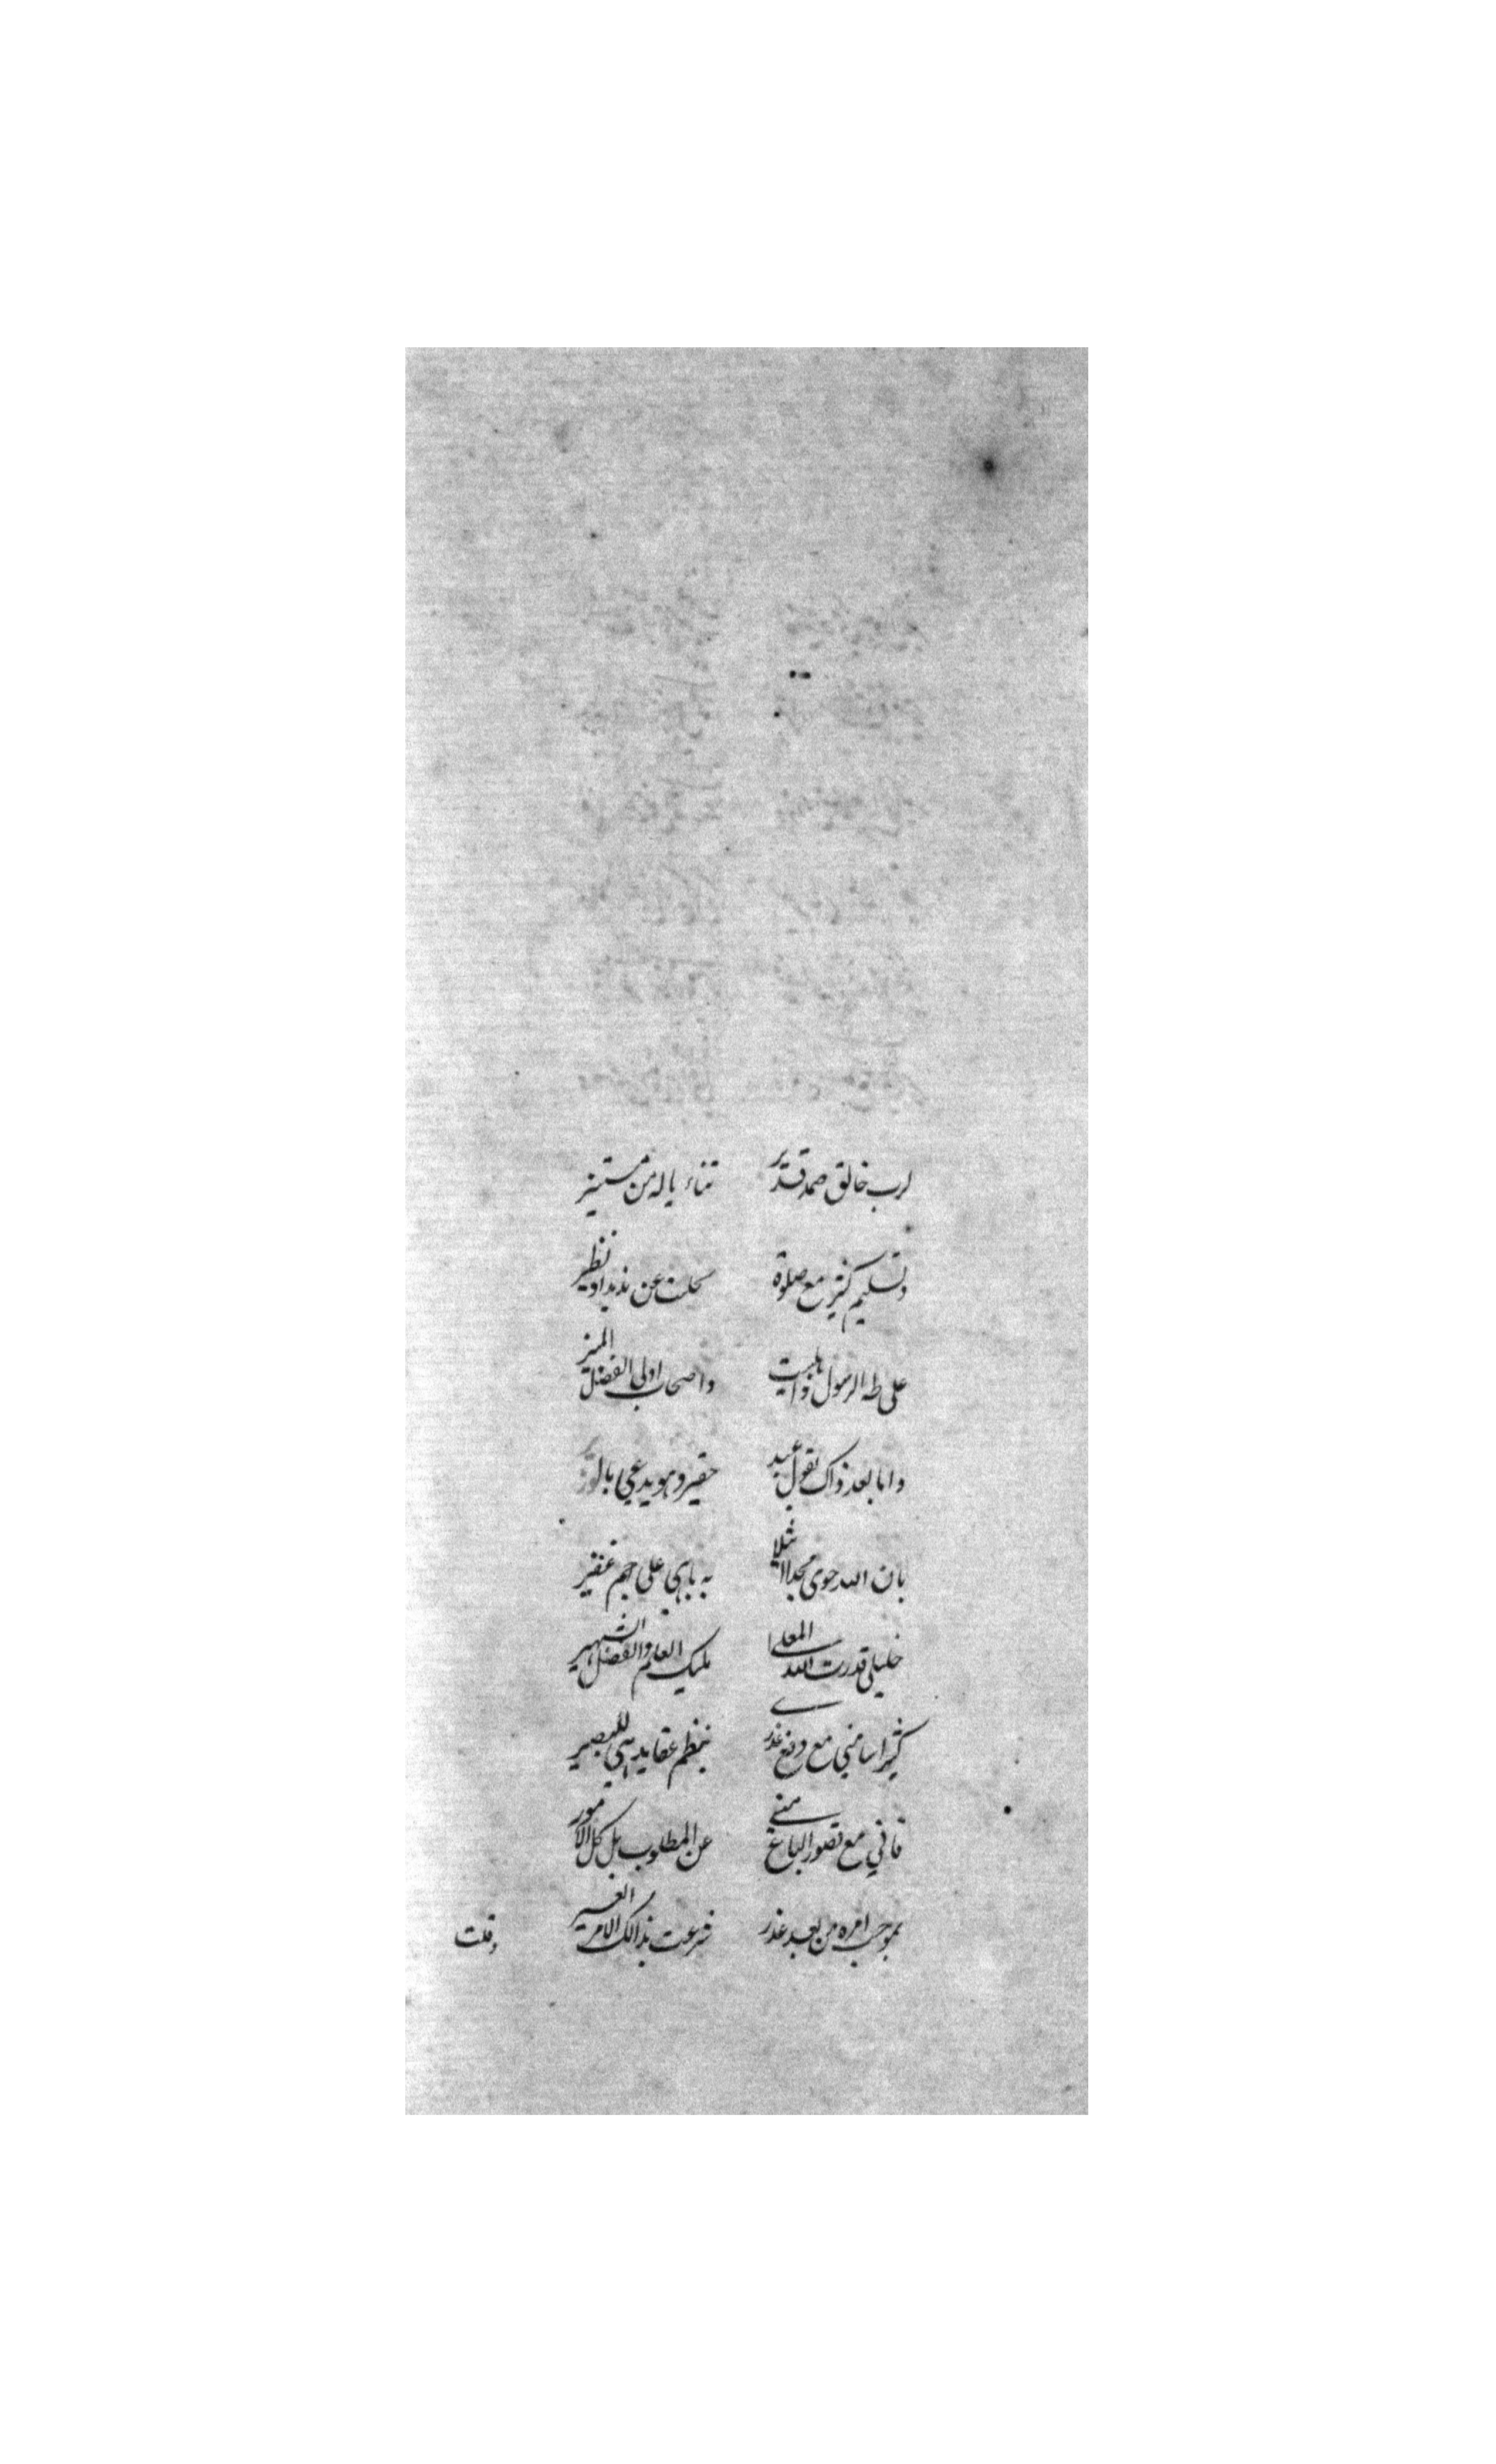 لرب خالق صمد قدير ثناء ياله من مستنير
وتسليم كثير مع صلوة تحلت عن نديد او نظير
على طه الرسول واهلبيت واصحاب اولى الفضل المنير
واما بعد ذاك يقول عبيد حقير وهو يدعى بال
بان الله حوى مجدا اثيلا به باهى على جم غفير
خليلي قدرت الله المعلى مليك العلم والفضل الشهير
كثيرا سامني مع وضع عذري بنظم عقايد هي للبصير
فاني مع قصور الباع مني عن المطلوب بل كل الامور
بموجب امره من بعد عذر شرعت بذالك الامر العسير
وقلت